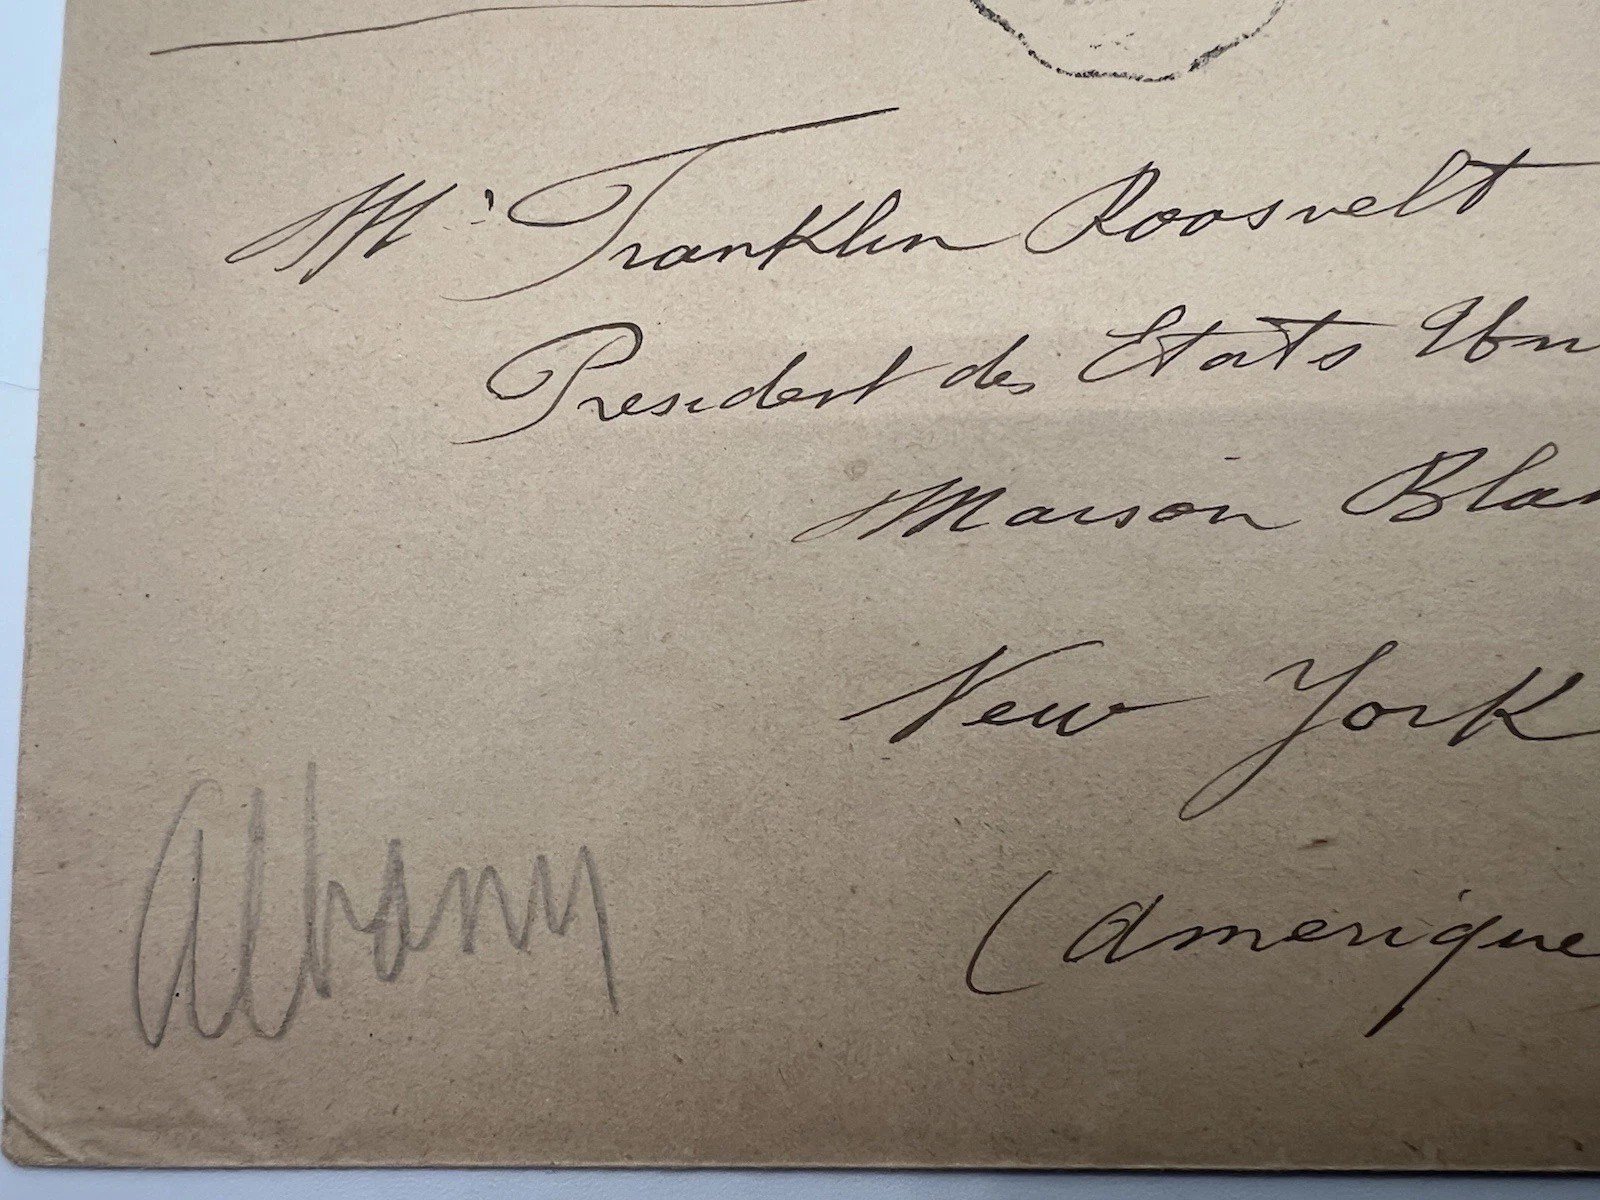 Mr Franklin Roosvelt
President des Etats Un
Maison Blan
New York
(Amerique
Albany